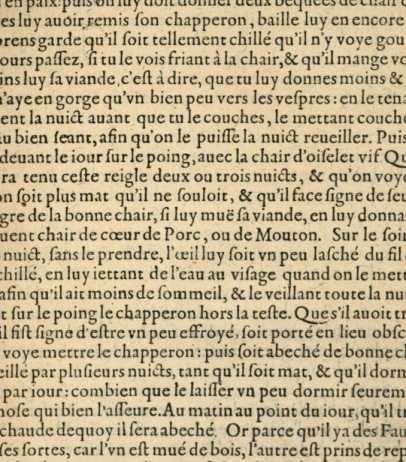 en paix: puis on luy doit donner deux bequees de chair
es luy auoir remis son chapperon, baille luy en encore
prens garde qu'il soit tellement chillé qu'il n'y voye gou
ours passez, si tu le vois friant à la chair, & qu'il mange vo
ins luy sa viande, c'est à dire, que tu luy donnes moins &
n'aye en gorge qu'vn bien peu vers les vespres: en le tena
ent la nuict auant que tu le couches, le mettant couche
u bien seant, afin qu'on le puisse la nuict reueiller. Puis
deuant le iour sur le poing, auec la chair d'oiselet vif Qu
ra tenu ceste reigle deux ou trois nuicts, & qu'on voye
on soit plus mat qu'il ne souloit, & qu'il face signe de seu
gre de la bonne chair, si luy muë sa viande, en luy donna
uent chair de cœur de Porc, ou de Mouton. Sur le soir
nuict, sans le prendre, l'œil luy soit vn peu lasché du fil
chillé, en luy iettant de l'eau au visage quand on le mett
afin qu'il ait moins de sommeil, & le veillant toute la nu
t sur le poing le chapperon hors la teste. Que s'il auoit tr
il fist signe d'estre vn peu effroyé, soit porté en lieu obsc
voye mettre le chapperon: puis soit abeché de bonne ch
eillé par plusieurs nuicts, tant qu'il soit mat, & qu'il dorm
par iour: combien que le laisser vn peu dormir seurem
hose qui bien l'asseure. Au matin au point du iour, qu'il t
chaude dequoy il sera abeché. Or parce qu'il y a des Fau
ses sortes, car l'vn est mué de bois, l'autre est prins de rep